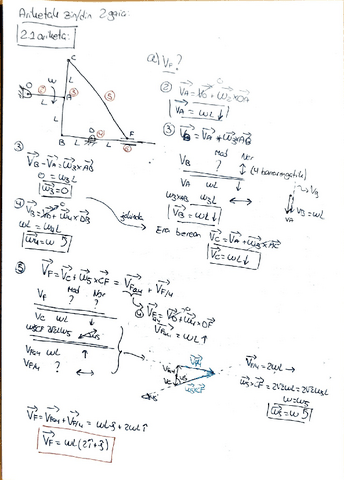 Ariketak zindin 2 gaia:
2.1 ariketa:
a) V_F?
② V_A = V_O + ω_2×OA
V_A = ωL ↓
③ V_B = V_A + ω_3×AB
Mod Nor
V_B ? ↕
V_A ωL ↓
ω_3×AB ω_3L ↔
V_B = ωL ↓
③ V_B = V_A + ω_3×AB
0 = ω_3L
ω_3 = 0
④ V_B = V_D + ω_4×DB
ωL = ω_4L
ω_4 = ω
Era berean
V_C = V_A + ω_3×AC
V_C = ωL ↓
⑤ V_F = V_C + ω_5×CF = V_F4 + V_F/4
Mod Nor
V_F ? ?
V_C ωL ↓
V_F4 ωL ↑
V_F/4 ? ↔
V_F4 = V_D + ω_4×DF
V_F4 = ωL ↑
V_F/4 = 2ωL →
ω_5×CF = 2√2 ωL = 2√2 ω_5L
ω_5 = ω
V_F = V_F4 + V_F/4 = ωL j + 2ωL i
V_F = ωL (2i + j)